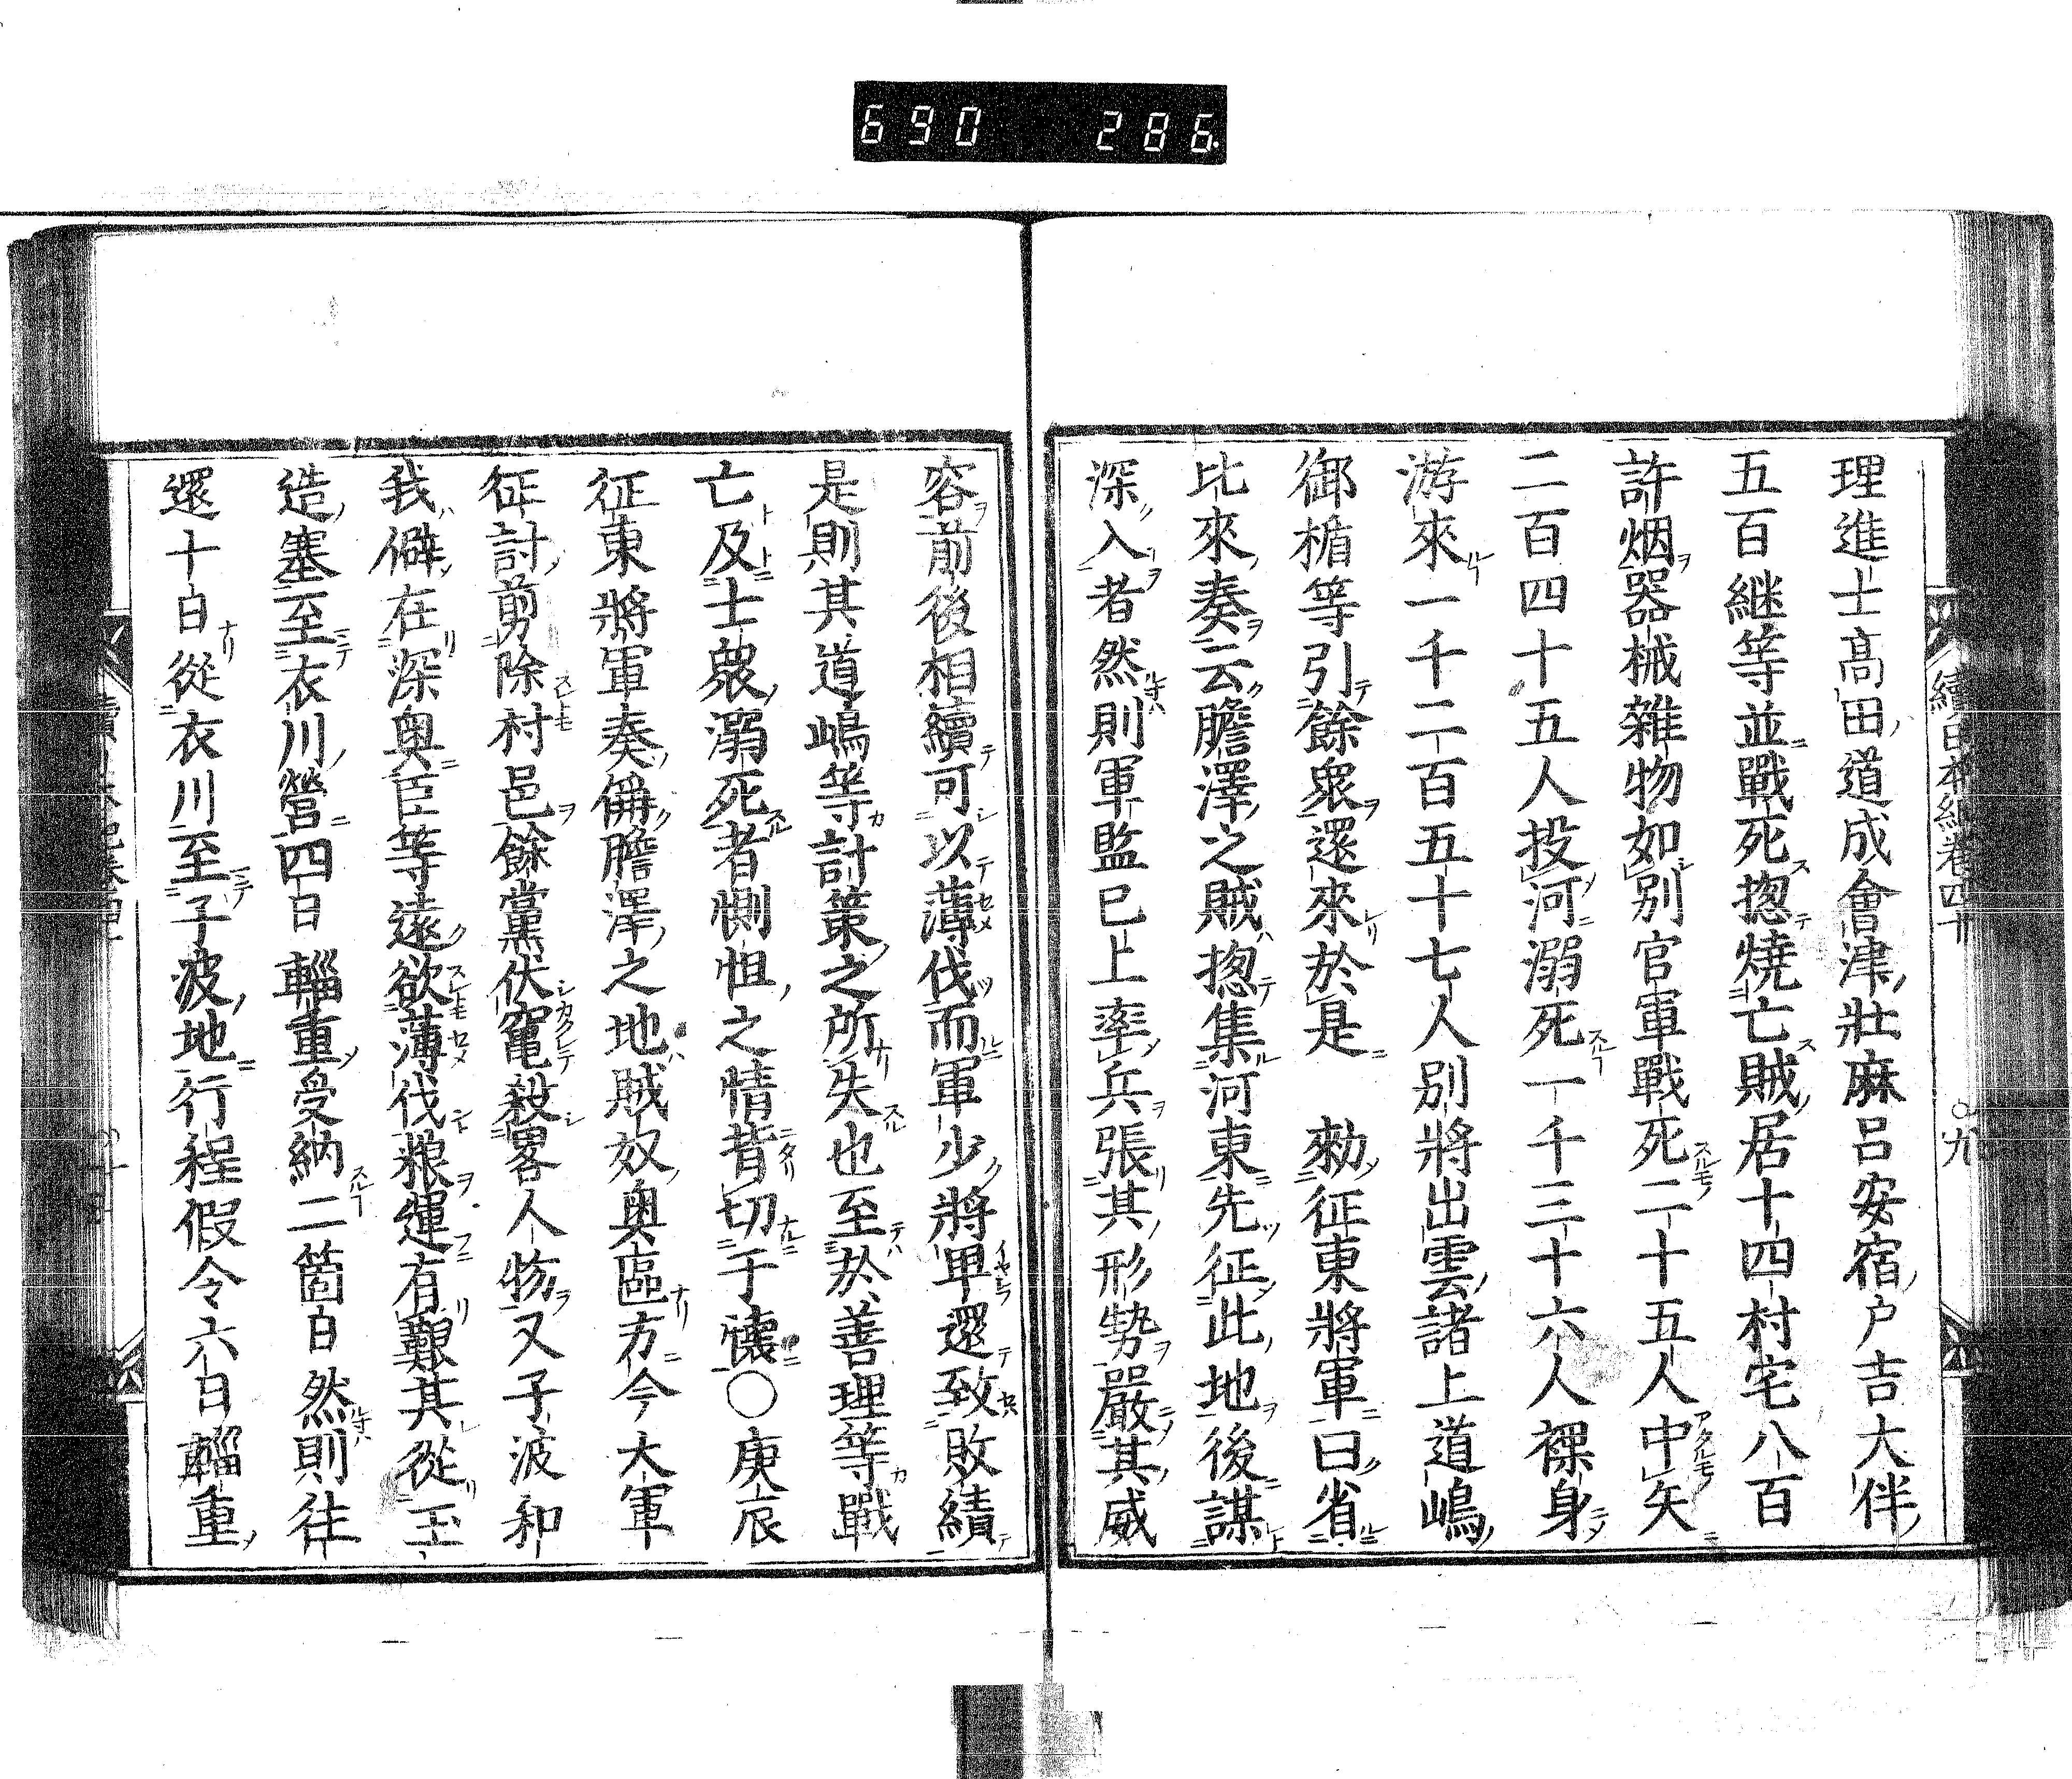 690 286
理進士高田道成會津壯麻呂安宿戸吉大伴
五百継等並戰死揔焼亡賊居十四村宅八百
許烟器械雜物如別官軍戰死二十五人中矢
二百四十五人投河溺死一千三十六人裸身
游來一千二百五十七人別將出雲諸上道嶋
御楯等引餘衆還來於是 勑征東將軍曰省
比來奏云膽澤之賊揔集河東先征此地後謀
深入者然則軍監已上率兵張其形勢嚴其威
容前後相續可以薄伐而軍少將卑還致敗績
是則其道嶋等計策之所失也至於善理等戰
亡及士衆溺死者惻怛之情昔切于懐〇庚辰
征東將軍奏偁膽澤之地賊奴奥區方今大軍
征討剪除村邑餘黨伏竄殺畧人物又子波和
我僻在深奥臣等遠欲薄伐粮運有艱其從玉
造塞至衣川營四日輜重受納二箇日然則往
還十日從衣川至子波地行程假令六日輜重
續日本紀卷四十